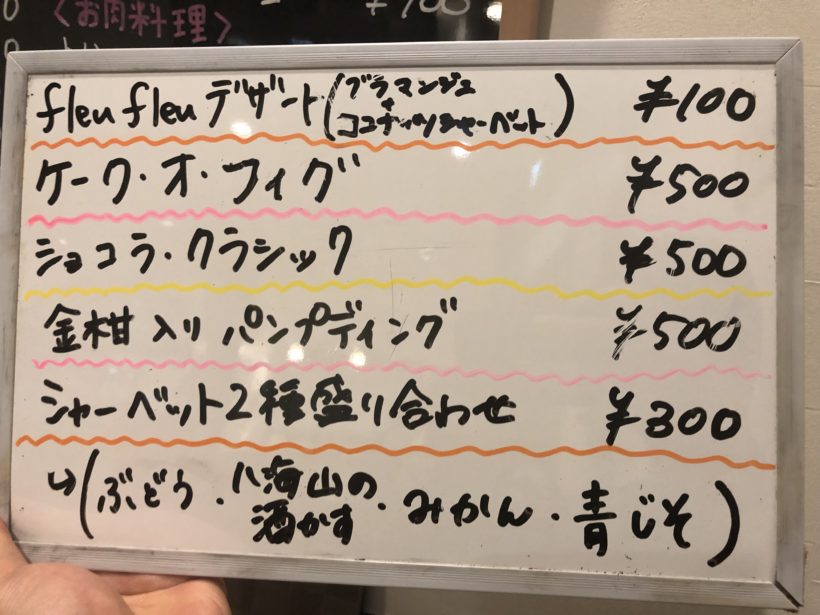 〈お肉料理〉
fleu fleu デザート(ブラマンジェ + ココナッツシャーベット) ¥100
ケーク・オ・フィグ ¥500
ショコラ・クラシック ¥500
金柑入りパンプディング ¥500
シャーベット2種盛り合わせ ¥300
↳(ぶどう・八海山の酒かす・みかん・青じそ)